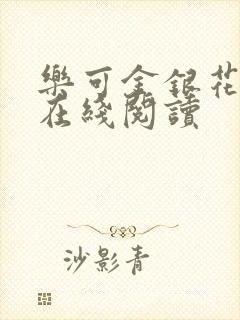 樂可金銀花
在綫閱讀
沙影青